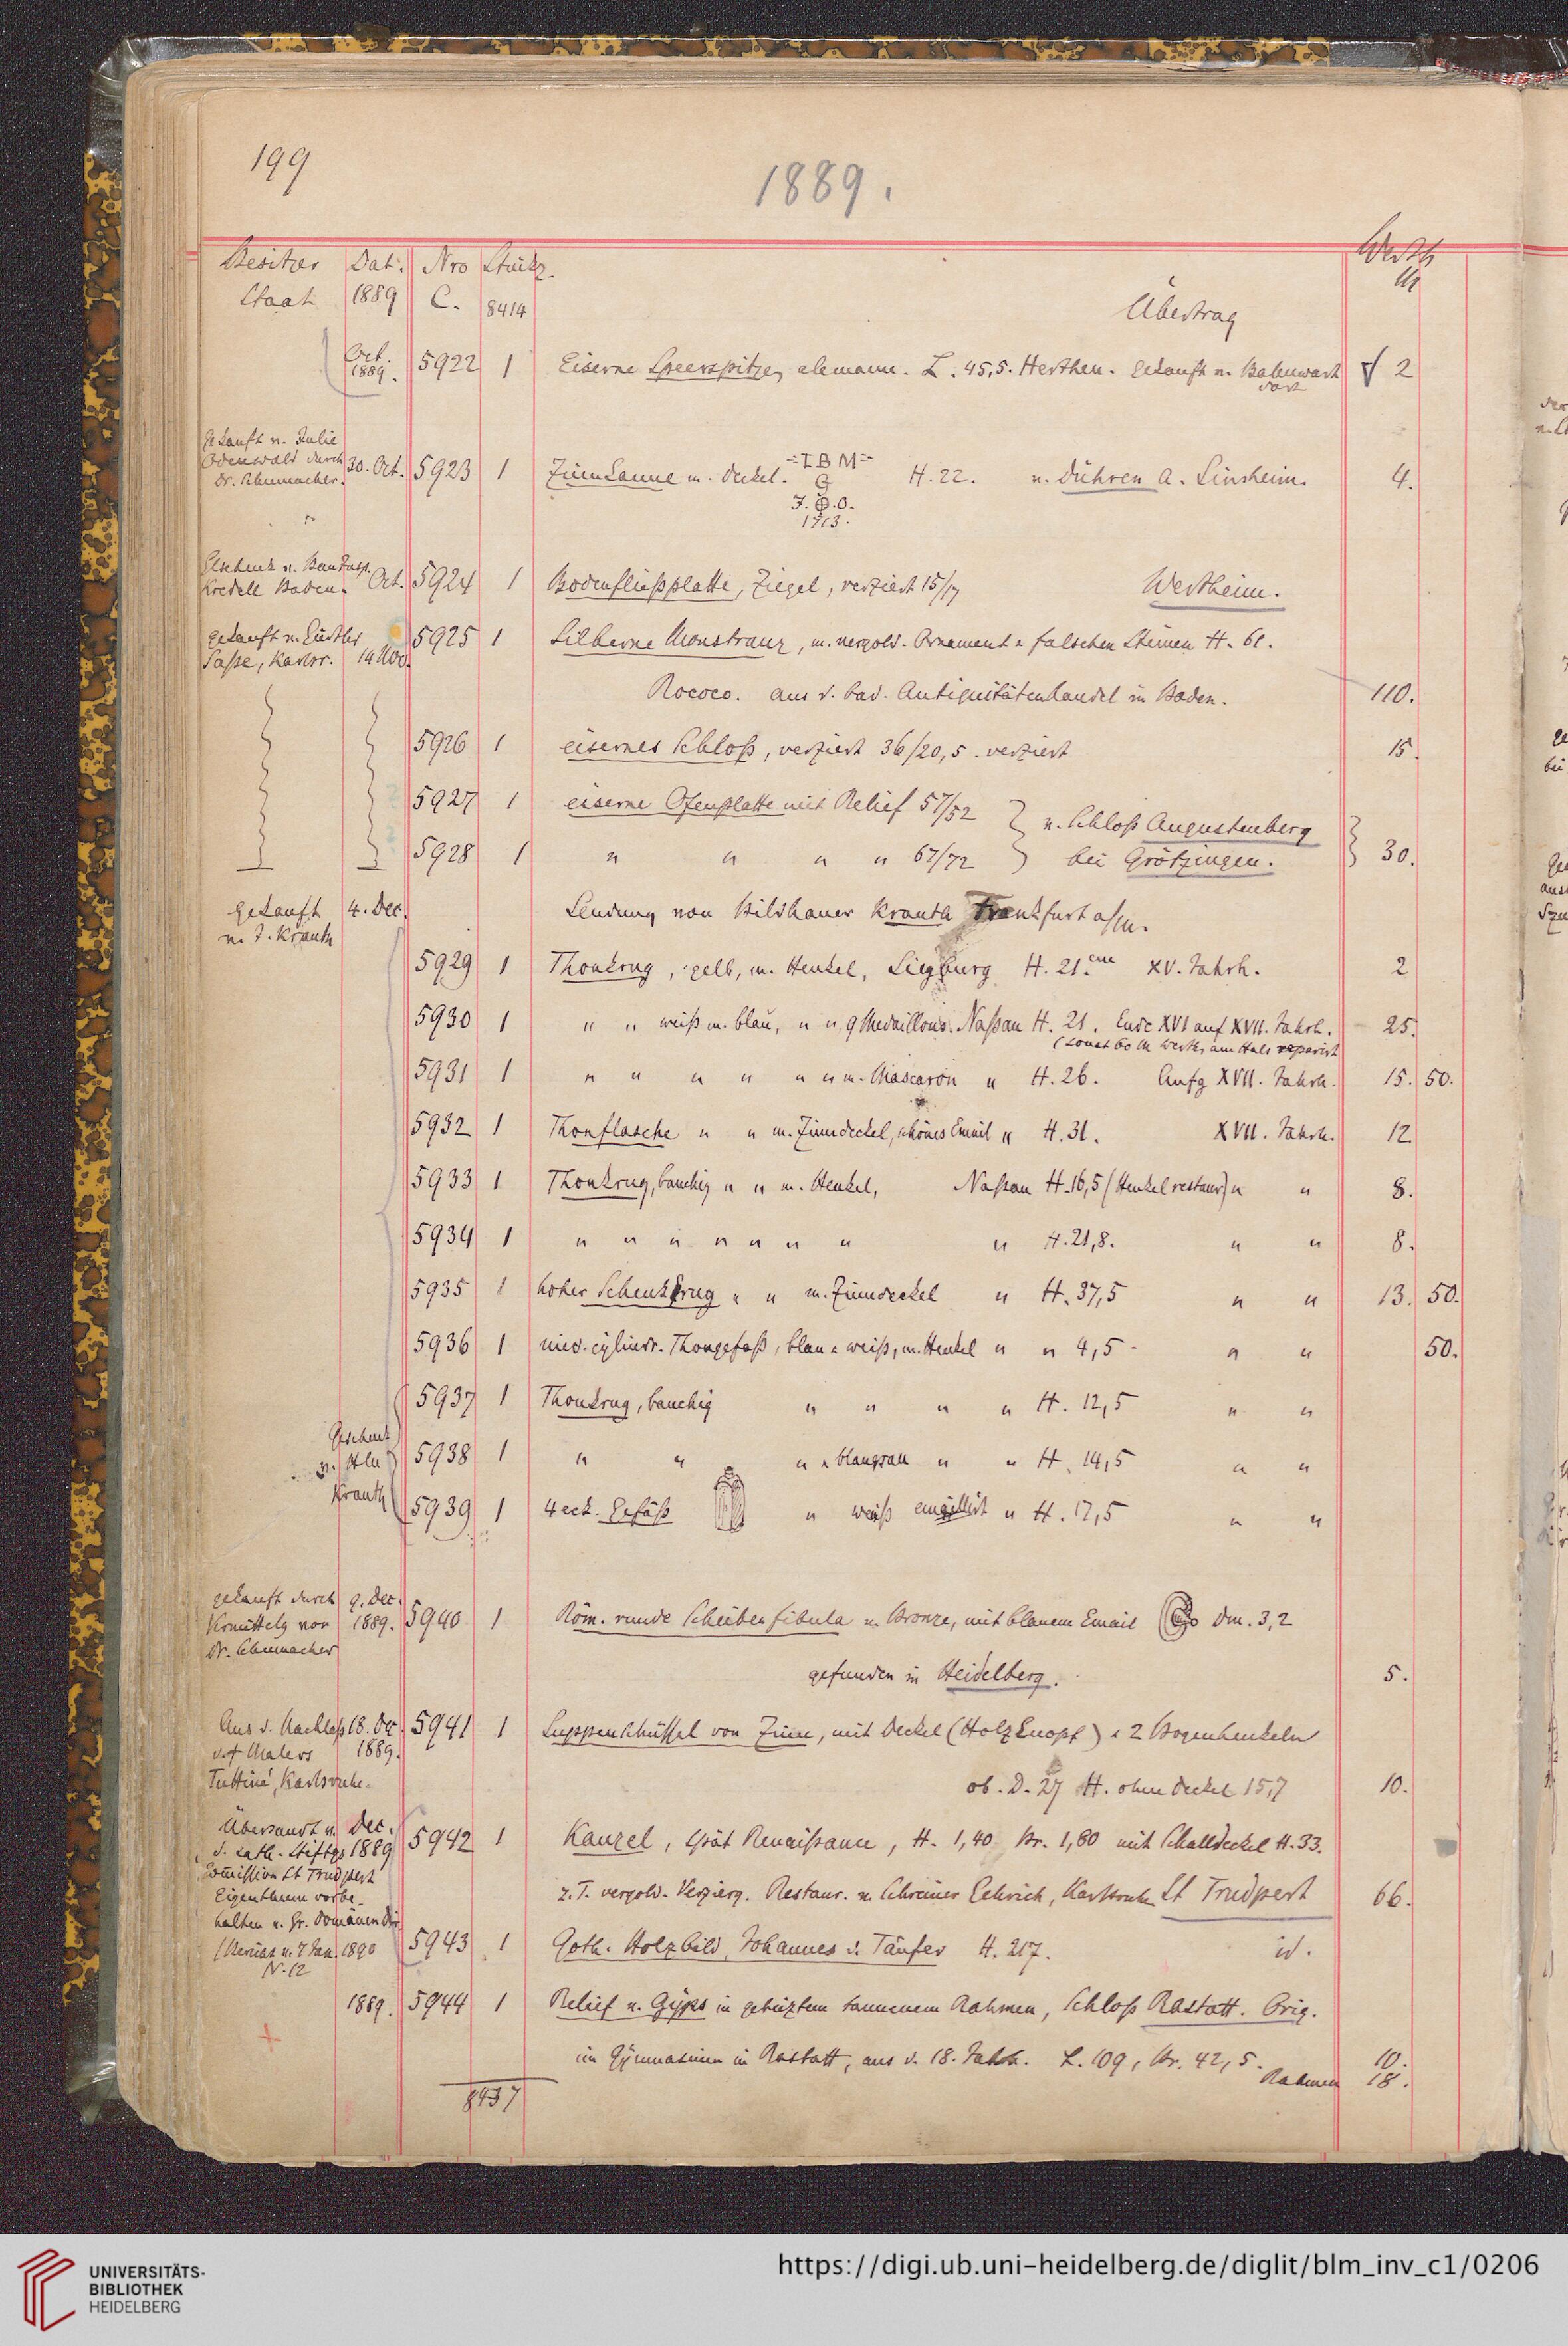 199
1889.
Besitzer Dat. Nro Stückz. Werth
Staat 1889 C. 8414 Übertrag M
Oct. 1889. 5922 1 Eiserne Speerspitze, alemann. L. 45,5. Herthen. gekauft v. Bahnwart dort 2
gekauft v. Julie
Odenwald durch 30. Oct. 5923 1 Zinnkanne m. Deckel. =I B M= H. 22. v. Dühren A. Sinsheim. 4.
Dr. Schumacher.
1713.
Geschenk v. Bauinsp.
Kredell Baden. Oct. 5924 1 Bodenfließplatte, Ziegel, verziert 15/17 Wertheim.
gekauft v. 5925 1 Silberne Monstranz, m. vergold. Ornament u falschen Steinen H. 61.
Sasse, Karlsr. 14 Nov.
Rococo. aus d. bad. Antiquitätenhandel in Baden. 110.
5926 1 eisernes Schloß, verziert 36/20,5. verziert 15.
5927 1 eiserne Ofenplatte mit Relief 57/52 } v. Schloß Augustenberg
5928 1 " " " " 67/72 } bei Grötzingen. } 30.
gekauft 4. Dec. Sendung von Bildhauer Krauth Frankfurt a/M.
v. J. Krauth
5929 1 Thonkrug, gelb, m. Henkel, Siegburg H. 21.cm XV. Jahrh. 2
5930 1 " " weiß m. blau, " ", 9 Medaillons. Naßau H. 21. Ende XVI auf XVII. Jahrh. 25.
(sonst 60 M Werth, am Hals reparirt
5931 1 " " " " " " m. Mascaron " H. 26. Anfg XVII. Jahrh. 15. 50.
5932 1 Thonflasche " " m. Zinndeckel, schönes Email " H. 31. XVII. Jahrh. 12
5933 1 Thonkrug, bauchig " " m. Henkel, Naßau H. 16,5 (Henkel restaur) " " 8.
5934 1 " " " " " " " " H. 21,8. " " 8.
5935 1 hoher Schenkkrug " " m. Zinndeckel " H. 37,5 " " 13. 50.
5936 1 nied. cylindr. Thongefäß, blau u weiß, m. Henkel " " 4,5 - " " 50.
5937 1 Thonkrug, bauchig " " " " H. 12,5 " "
Geschenk
v. Hrn 5938 1 " " " u blaugrau " " H. 14,5 " "
Krauth 5939 1 4 eck. Gefäß " weiß emaillirt " H. 17,5 " "
gekauft durch 9. Dec.
Vermittelg von 1889. 5940 1 Röm. runde Scheibenfibula v. Bronze, mit blauem Email Dm. 3,2
Dr. Schumacher
gefunden in Heidelberg. 5.
Aus d. Nachlaß 18. Dec 5941 1 Suppenschüssel von Zinn, mit Deckel (Holzknopf) u 2 Bogenhenkeln
d. † Malers 1889.
Tuttiné, Karlsruhe. ob. D. 27 H. ohne Deckel 15,7 10.
Übersandt v. Dec.
d. kath. Stiftgs 1889 5942 1 Kanzel, spät Renaißance, H. 1,40 Br. 1,80 mit Schalldeckel H. 33.
Commission St Trudpert
Eigenthum vorbe- z. T. vergold. Verzierg. Restaur. v. Schreiner Gehrich, Karlsruhe St Trudpert 66.
halten v. Gr. Domänen Dir.
(Bericht v. 7 Jan. 1890 5943 1 Goth. Holzbild, Johannes d. Täufer H. 217. id.
N. 12
1889. 5944 1 Relief v. Gÿps in gebeiztem tannenem Rahmen, Schloß Rastatt. Orig.
im Gÿmnasium in Rastatt, aus d. 18. Jahrh. L. 109, Br. 42,5. 10.
Rahmen 18.
8437
UNIVERSITÄTS-
BIBLIOTHEK
HEIDELBERG
https://digi.ub.uni-heidelberg.de/diglit/blm_inv_c1/0206